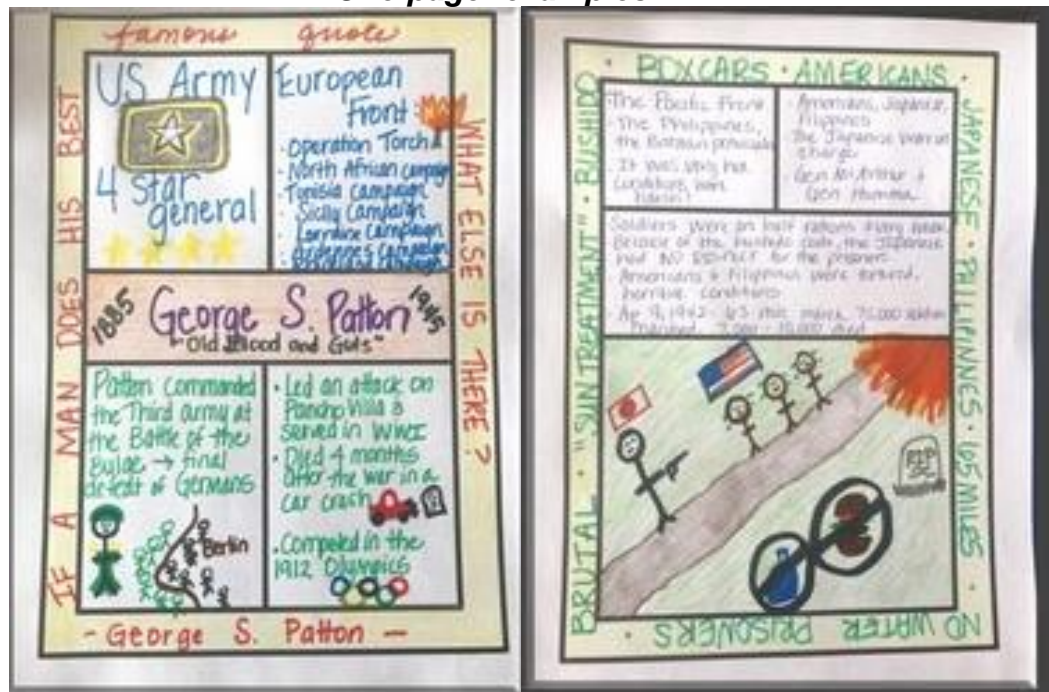 famous quote
IF A MAN DOES HIS BEST
WHAT ELSE IS THERE?
- George S. Patton -
US Army
4 star
general
European
Front
· Operation Torch
· North African campaign
· Tunisia campaign
· Sicily Campaign
· Lorraine Campaign
· Ardennes Campaign
1885
George S. Patton
1945
"Old Blood and Guts"
Patton commanded
the Third army at
the Battle of the
Bulge → final
defeat of Germans
Berlin
• Led an attack on
Pancho Villa &
served in WWI
• Died 4 months
after the war in a
car crash
• Competed in the
1912 Olympics
· BOXCARS · AMERICANS ·
JAPANESE · PHILIPINES · 65 MILES
NO WATER PRISONERS ·
BRUTAL · "SUN TREATMENT" · BUSHIDO
· The Pacific Front
· The Philippines,
the Bataan peninsula
· It was very hot
· Americans, Japanese,
Filippinos
· The Japanese were in
charge
· Gen McArthur +
Gen Homma
Soldiers were on half rations
Because of the bushido code, the Japanese
had NO RESPECT for the prisoners
· Americans & Filippinos were
horrible conditions
· Ap 9, 1942 - 63 mile march, 75,000 soldiers
RIP